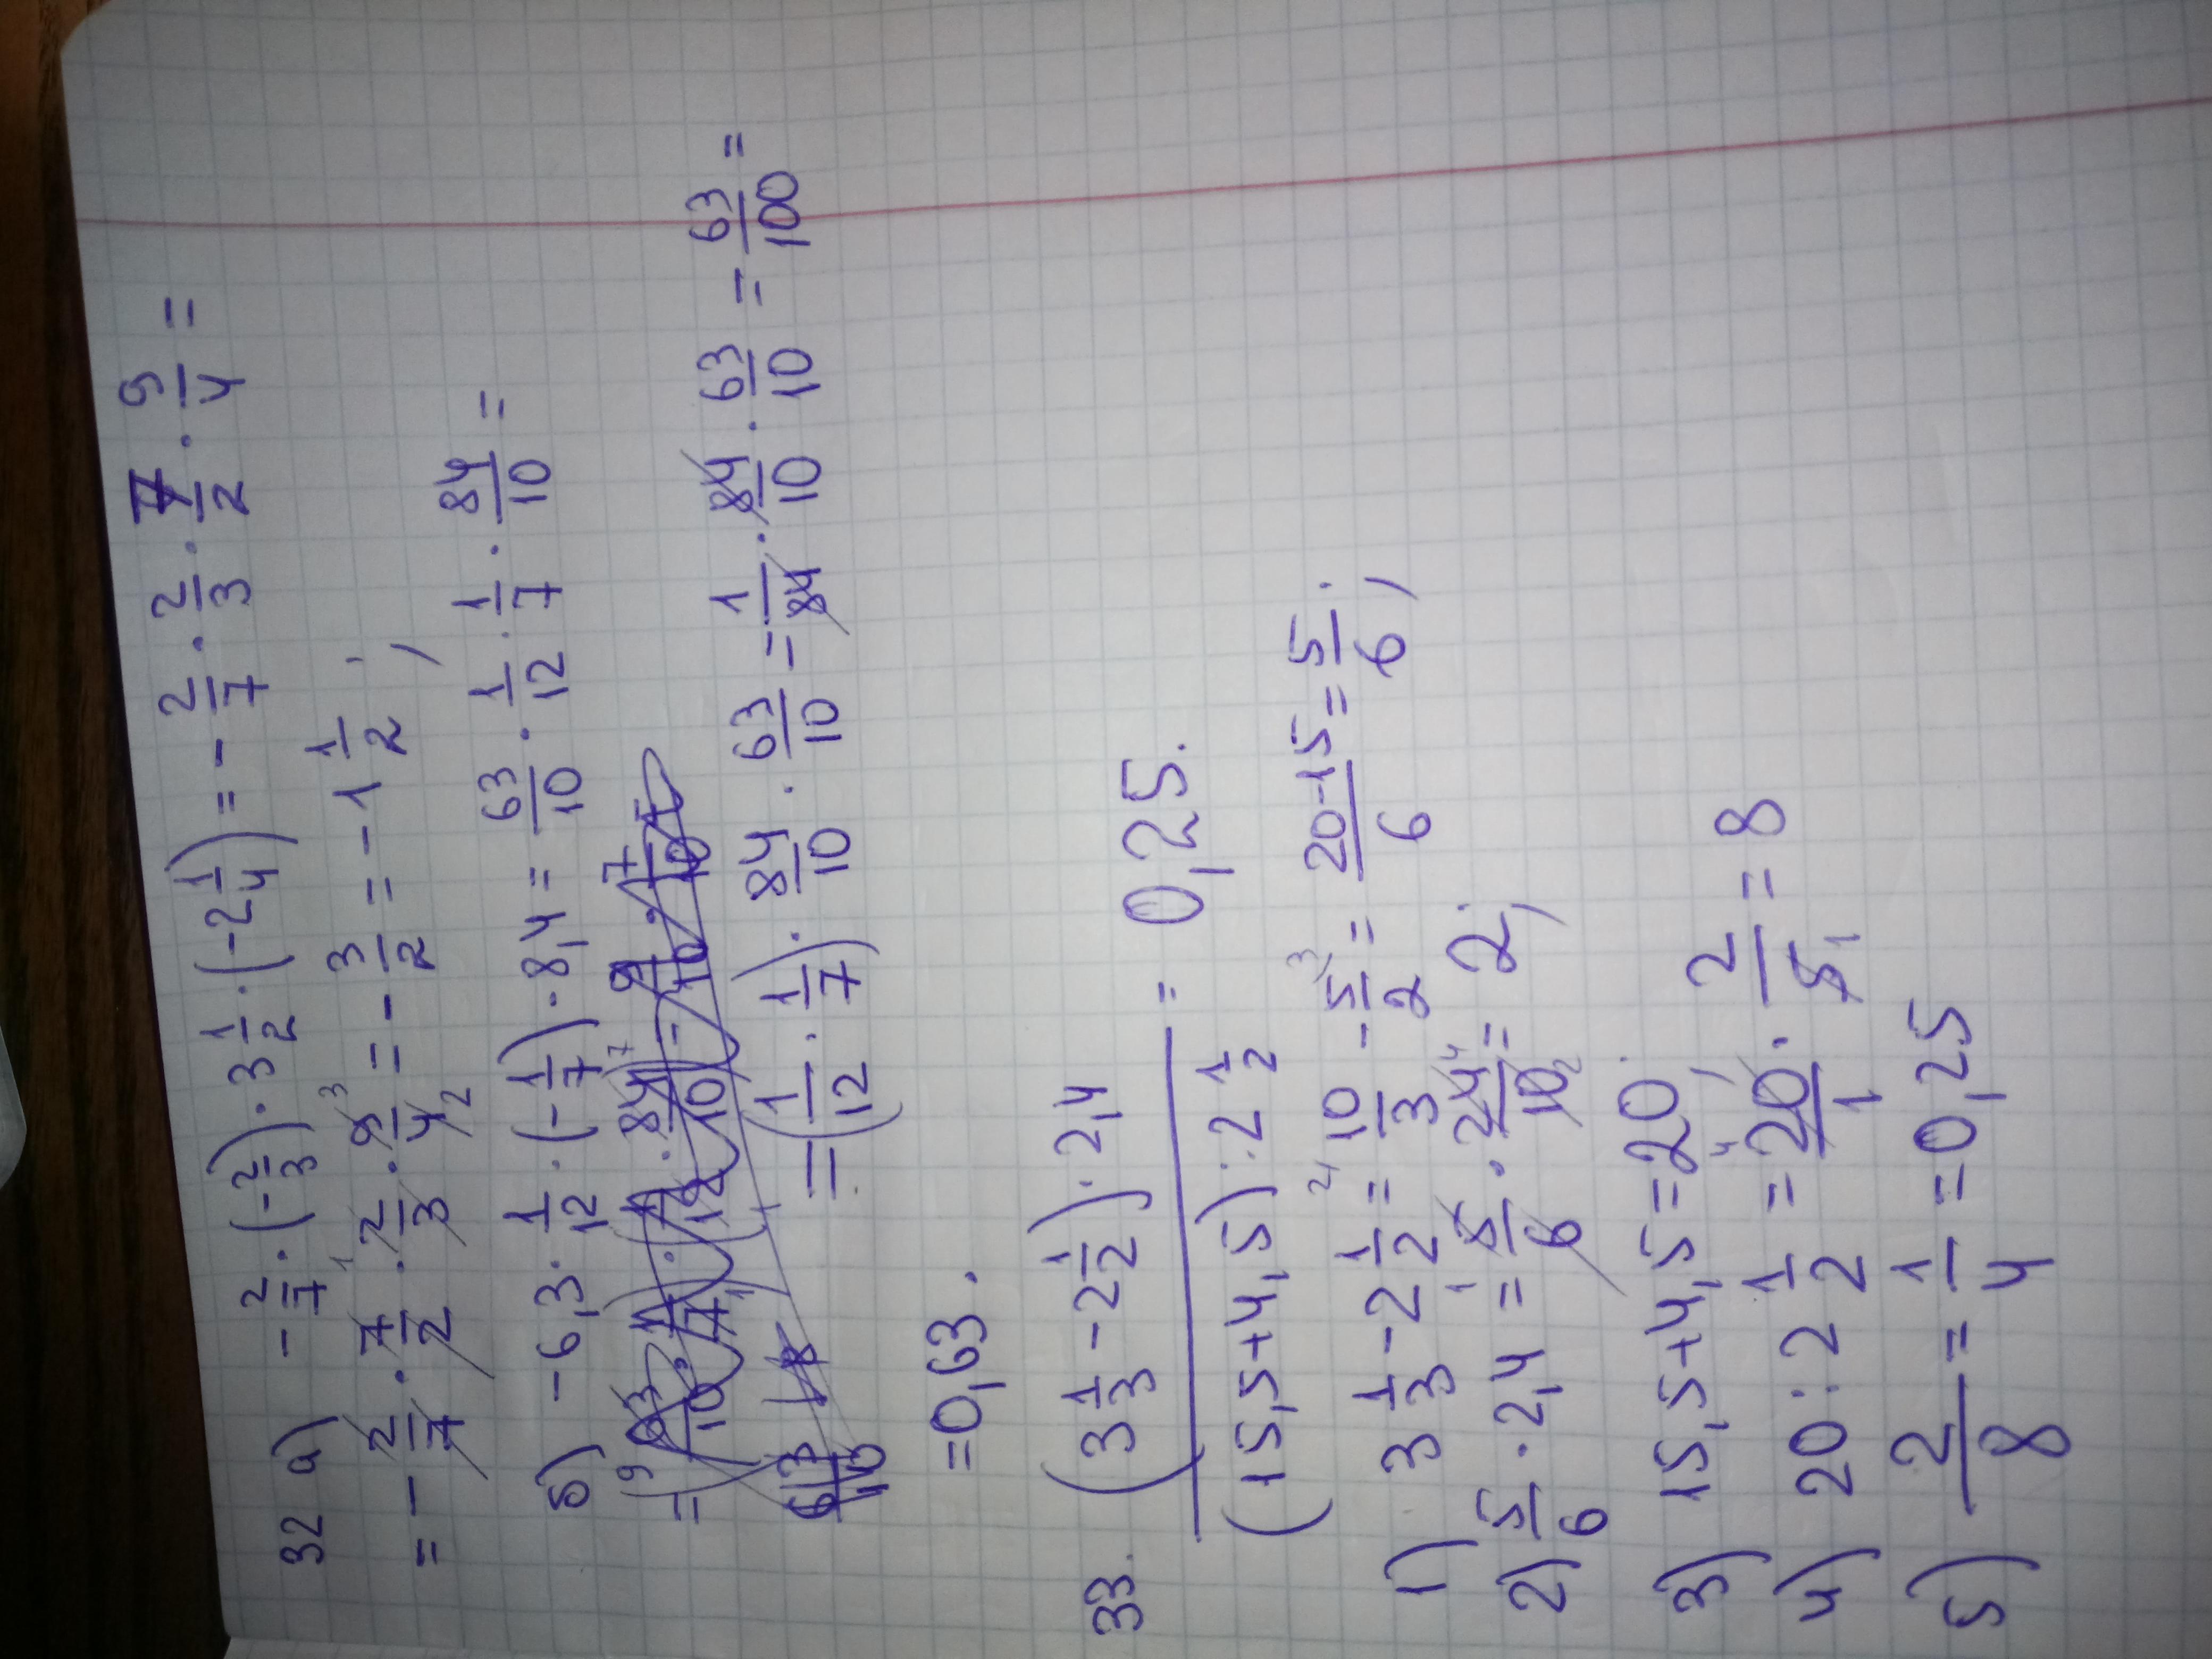 32 а) -2/7 · (-2/3) · 3 1/2 · (-2 1/4) = - 2/7 · 2/3 · 7/2 · 9/4 =
= - 2/7 · 7/2 · 2/3 · 9/4 = - 3/2 = -1 1/2;
б) -6,3 · 1/12 · (-1/7) · 8,4 = 63/10 · 1/12 · 1/7 · 84/10 =
= (1/12 · 1/7) · 84/10 · 63/10 = 1/84 · 84/10 · 63/10 = 63/100 =
= 0,63.
33. (3 1/3 - 2 1/2) · 2,4 / (15,5 + 4,5) : 2 1/2 = 0,25.
1) 3 1/3 - 2 1/2 = 10/3 - 5/2 = 20-15/6 = 5/6;
2) 5/6 · 2,4 = 5/6 · 24/10 = 2;
3) 15,5 + 4,5 = 20;
4) 20 : 2 1/2 = 20/1 · 2/5 = 8
5) 2/8 = 1/4 = 0,25